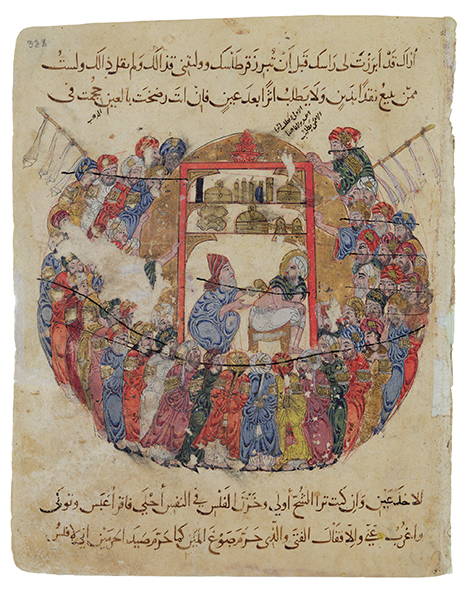 اراك قد ابرزت لي راسك قبل أن تبرز قرطاسك ووليتني قذالك ولم تقل لي ذا لك ولست
ممن يبيع نقدا بدين ولا يطلب اثرا بعد عين فان انت رضخت بالعين حجمت في
الاخدعين وان كنت ترا الشح أولى وخزن الفلس في النفس أحلى فاقرا عبس وتولى
واغرب عني والا فقال الفتى والذي حرم صوغ المين كما حرم صيد الحرمين اني لافلس